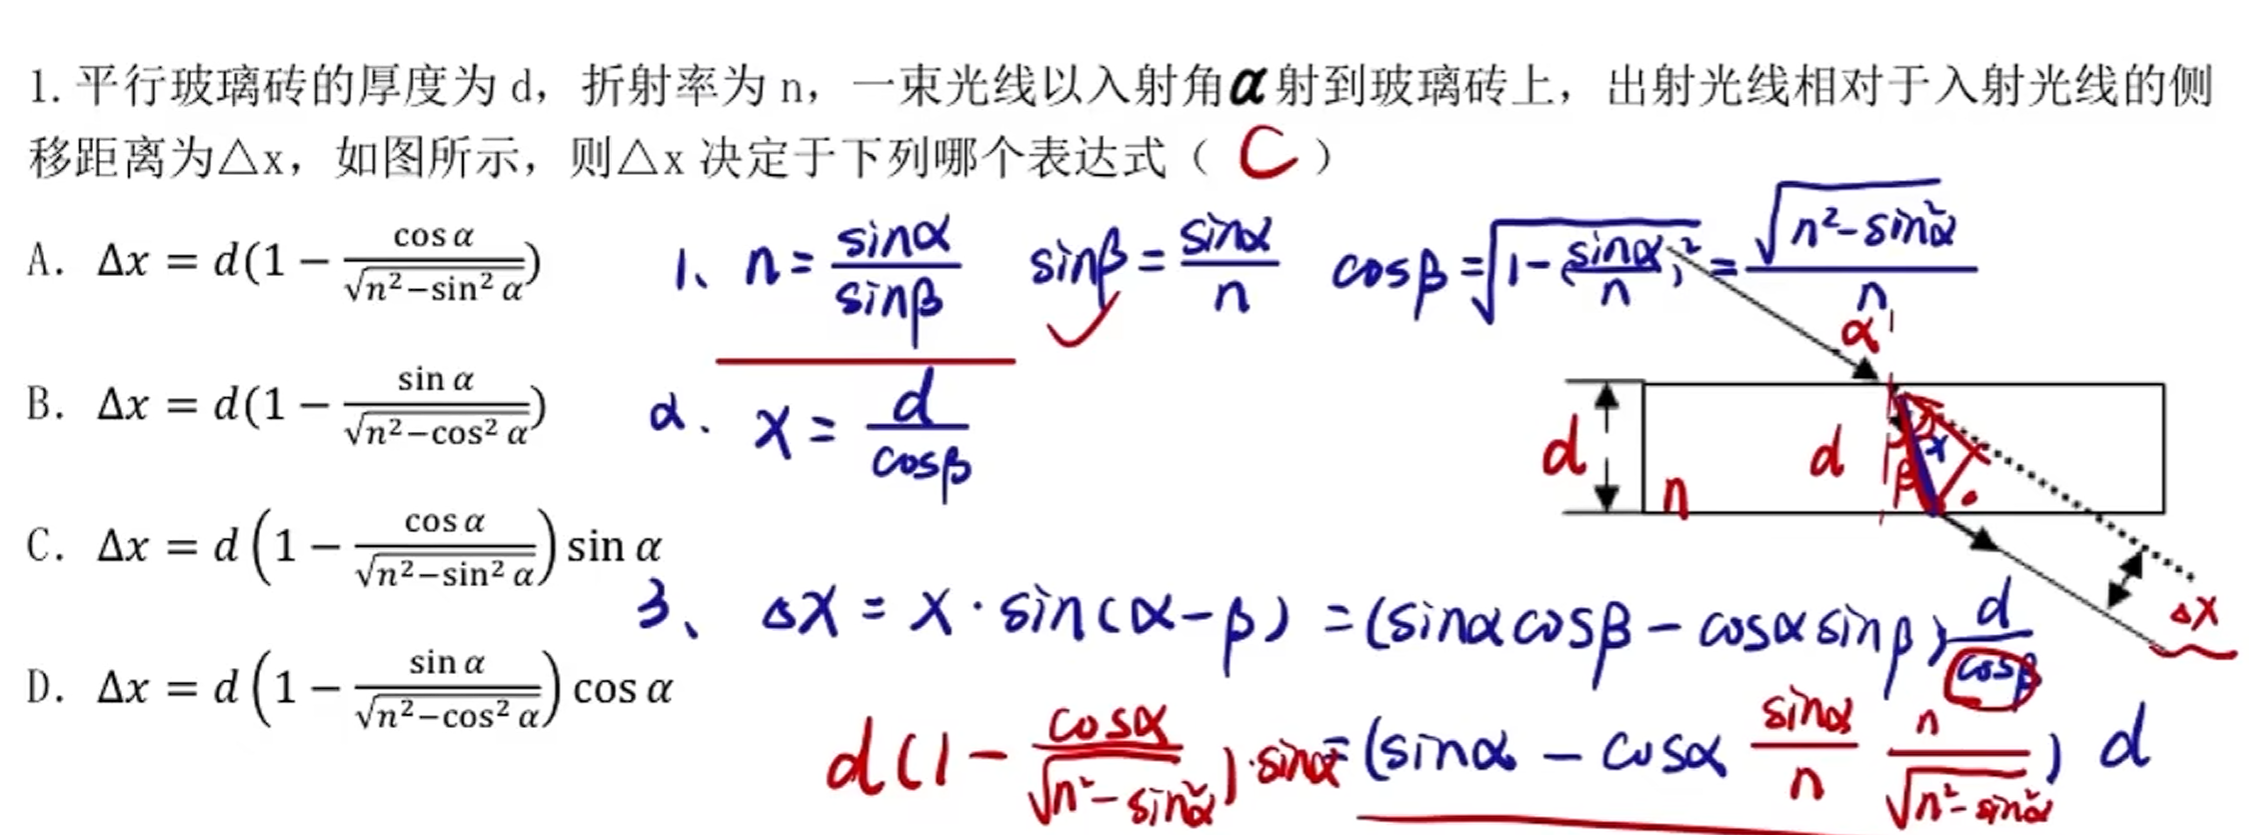 1. 平行玻璃砖的厚度为 d，折射率为 n，一束光线以入射角α射到玻璃砖上，出射光线相对于入射光线的侧
移距离为△x，如图所示，则△x 决定于下列哪个表达式（ C ）
A. Δx = d(1 − cos α / √(n²−sin² α))
B. Δx = d(1 − sin α / √(n²−cos² α))
C. Δx = d(1 − cos α / √(n²−sin² α)) sin α
D. Δx = d(1 − sin α / √(n²−cos² α)) cos α
1、 n = sinα / sinβ  sinβ = sinα / n  cosβ = √(1−(sinα / n)²) = √(n²−sin²α) / n
2. x = d / cosβ
α
d
n
d
β
x
3、 ΔX = X · sin(α−β) = (sinαcosβ − cosαsinβ) d / cosβ
ΔX
d(1 − cosα / √(n²−sin²α)) · sinα = (sinα − cosα sinα / n n / √(n²−sin²α)) d